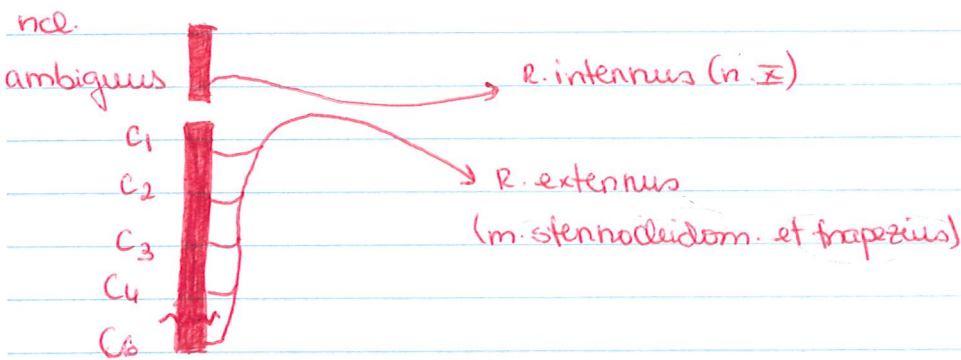 ncl.
ambiguus
R. internus (n. X)
C1
C2
R. externus
C3
(m. sternocleidom. et trapezius)
C4
C6